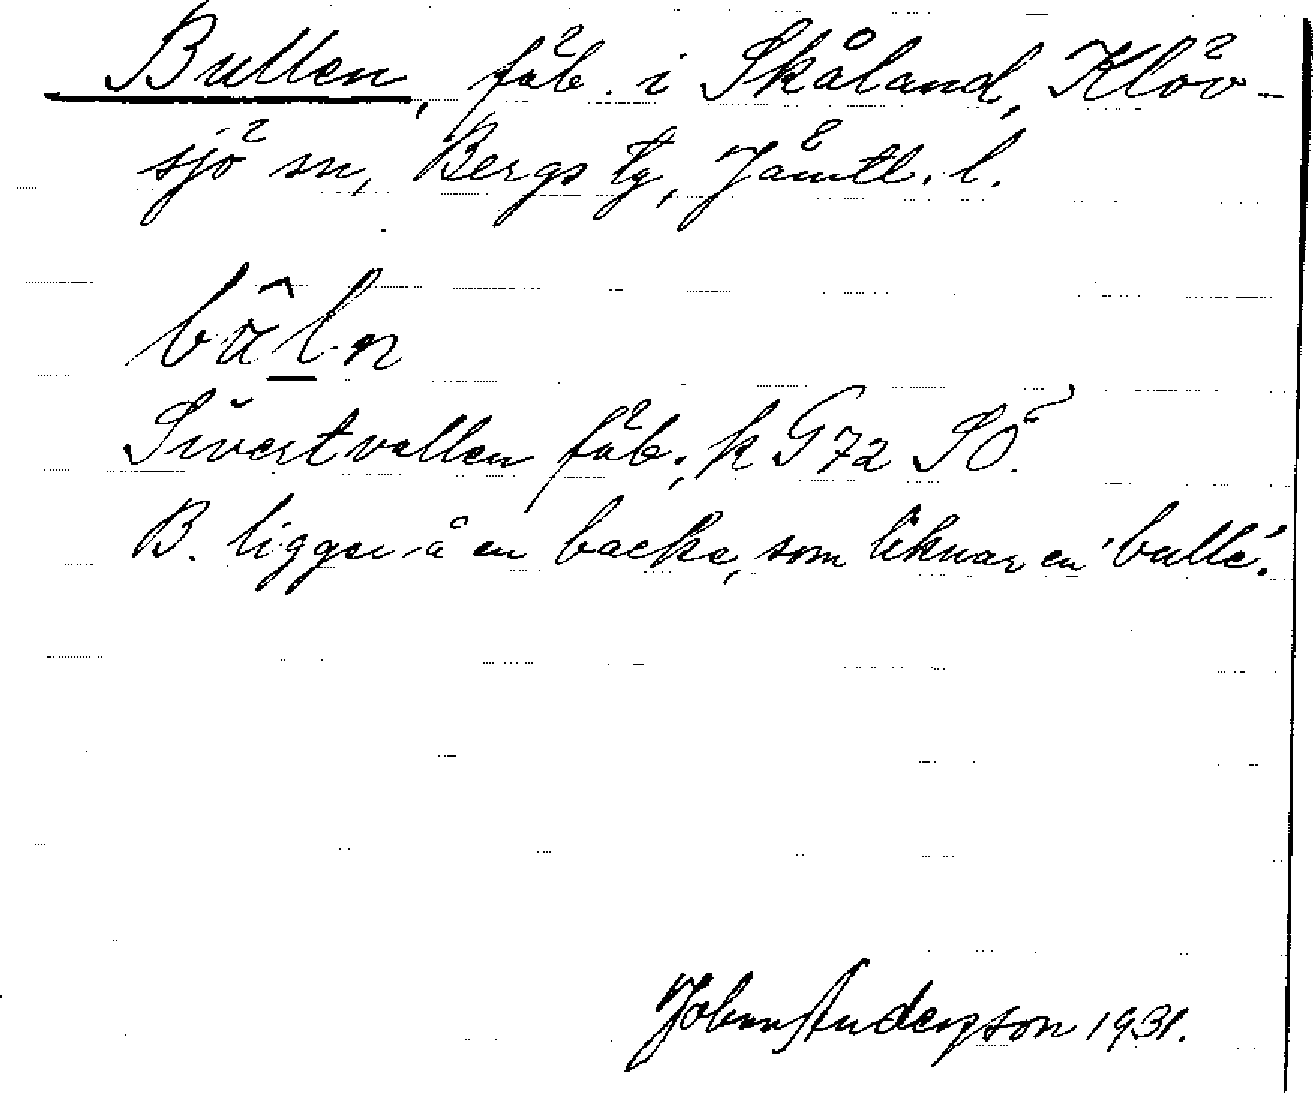 Bullen, fäb. i Skåland, Klöv-
sjö sn, Bergs tg, Jämtl. l.
bâl̲n
Sivertvallen fäb.; k G72 SÖ.
B. ligger å en backe, som liknar en 'bulle'.
Johan Anderson 1931.